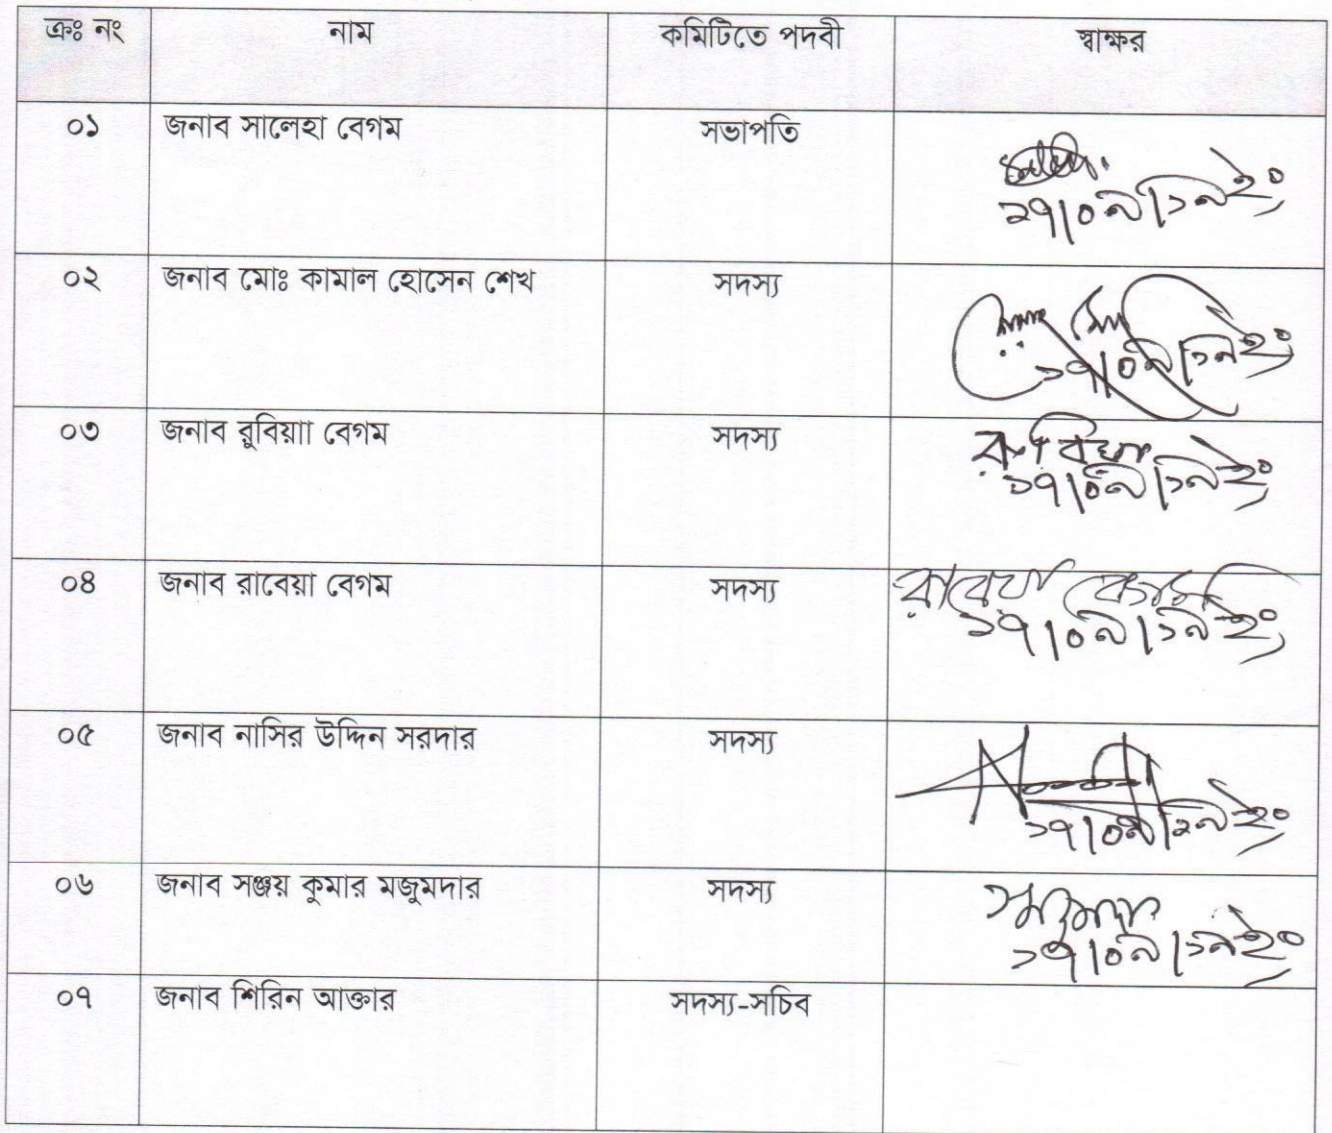 ক্রঃ নং নাম কমিটিতে পদবী স্বাক্ষর
০১ জনাব সালেহা বেগম সভাপতি
১৭|০৯|১৯ইং
০২ জনাব মোঃ কামাল হোসেন শেখ সদস্য
১৭|০৯|১৯ইং
০৩ জনাব রুবিয়াা বেগম সদস্য রুবিয়া
১৭|০৯|১৯ইং
০৪ জনাব রাবেয়া বেগম সদস্য রাবেয়া বেগম
১৭|০৯|১৯ইং
০৫ জনাব নাসির উদ্দিন সরদার সদস্য
১৭|০৯|১৯ইং
০৬ জনাব সঞ্জয় কুমার মজুমদার সদস্য
১৭|০৯|১৯ইং
০৭ জনাব শিরিন আক্তার সদস্য-সচিব